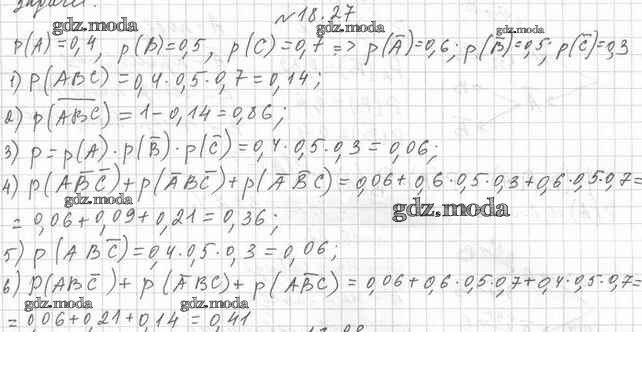 задачи.
№18.27
gdz.moda gdz.moda gdz.moda
p(A)=0,4, p(B)=0,5, p(C)=0,7 => p(A̅)=0,6; p(B̅)=0,5; p(C̅)=0,3
1) p(ABC)=0,4·0,5·0,7=0,14;
2) p(A̅B̅C̅)=1-0,14=0,86;
3) p=p(A)·p(B̅)·p(C̅)=0,4·0,5·0,3=0,06;
4) p(AB̅C̅)+p(A̅BC̅)+p(A̅B̅C)=0,06+0,6·0,5·0,3+0,6·0,5·0,7=
gdz.moda
=0,06+0,09+0,21=0,36;
gdz.moda
5) p(ABC̅)=0,4·0,5·0,3=0,06;
6) p(ABC̅)+p(A̅BC)+p(AB̅C)=0,06+0,6·0,5·0,7+0,4·0,5·0,7=
gdz.moda gdz.moda
=0,06+0,21+0,14=0,41